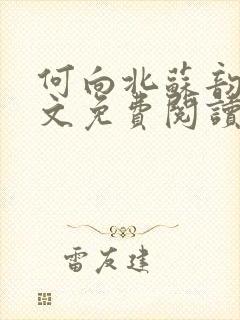 何向北蘇韵
文免費閱讀
雷友建